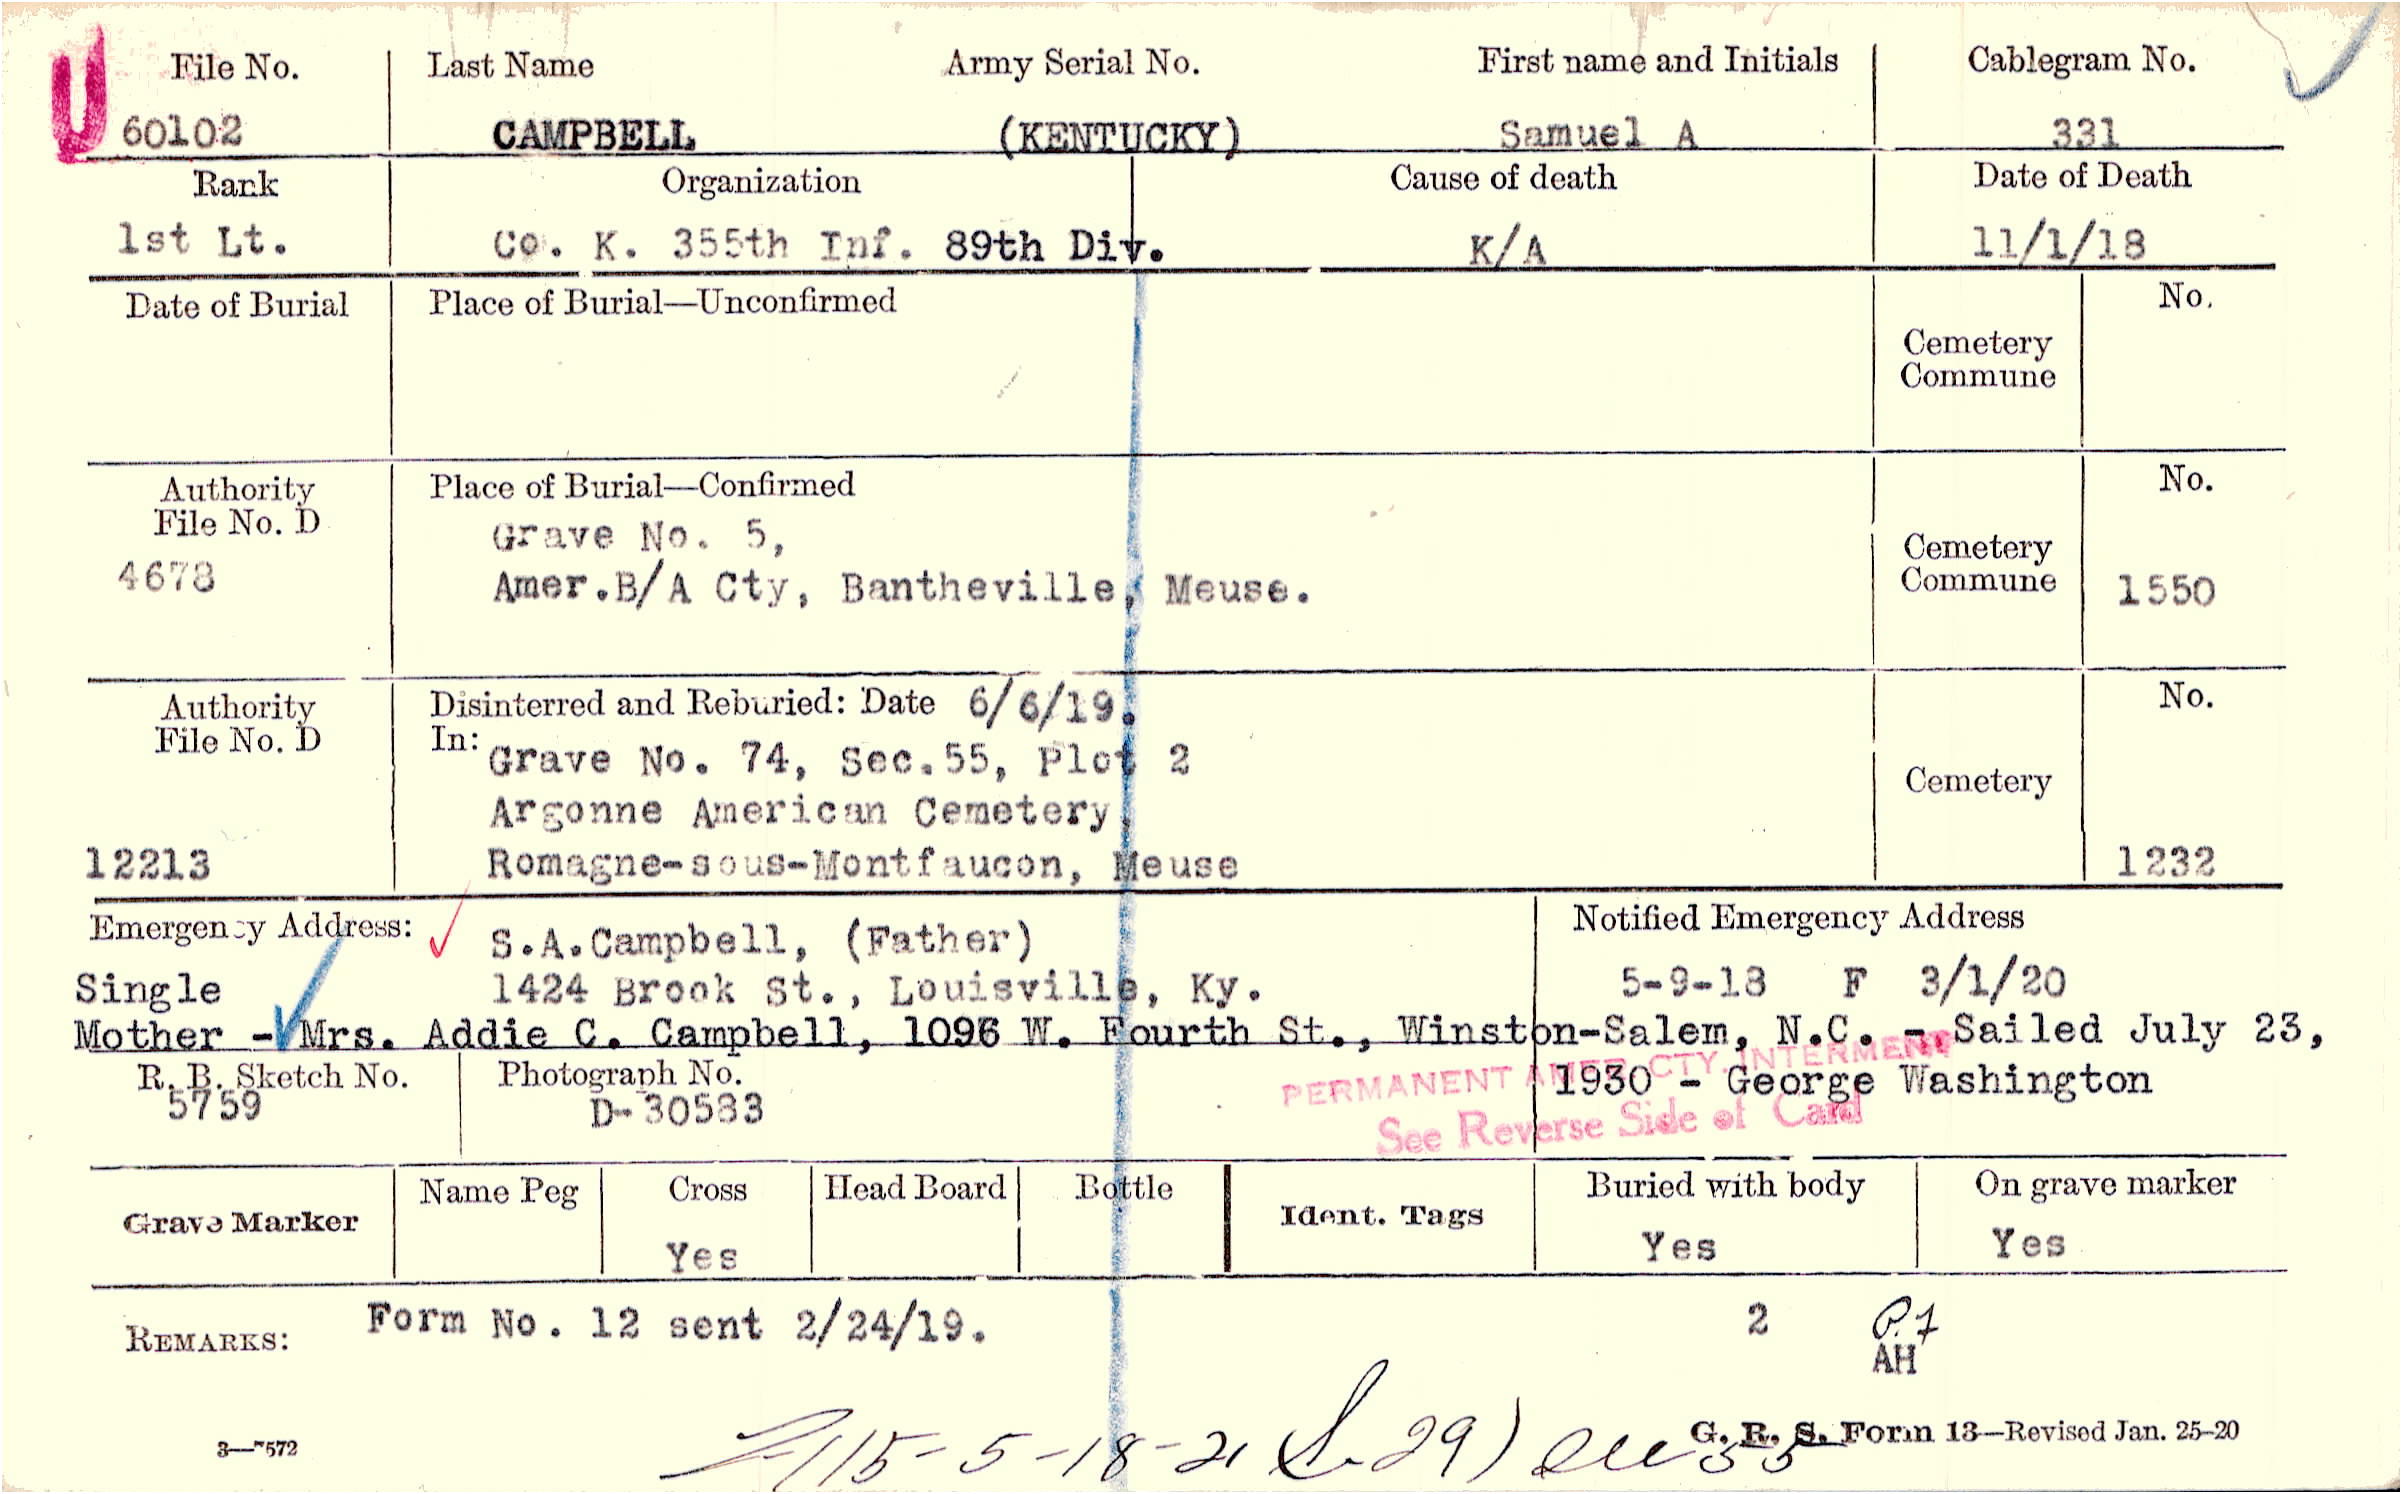 File No. Last Name Army Serial No. First name and Initials Cablegram No.
60102 CAMPBELL (KENTUCKY) Samuel A 331
Rank Organization Cause of death Date of Death
1st Lt. Co. K. 355th Inf. 89th Div. K/A 11/1/18
Date of Burial Place of Burial—Unconfirmed No.
Cemetery
Commune
Authority Place of Burial—Confirmed No.
File No. D
Grave No. 5,
Cemetery
4678 Amer.B/A Cty, Bantheville, Meuse. Commune 1550
Authority Disinterred and Reburied: Date 6/6/19. No.
File No. D In:
Grave No. 74, Sec.55, Plot 2
Cemetery
Argonne American Cemetery,
12213 Romagne-sous-Montfaucon, Meuse 1232
Emergency Address: S.A.Campbell, (Father) Notified Emergency Address
Single 1424 Brook St., Louisville, Ky. 5-9-18 F 3/1/20
Mother - Mrs. Addie C. Campbell, 1096 W. Fourth St., Winston-Salem, N.C. - Sailed July 23,
1930 - George Washington
PERMANENT AMER. CTY. INTERMENT
See Reverse Side of Card
R. B. Sketch No. Photograph No.
5759 D-30583
Grave Marker Name Peg Cross Head Board Bottle Ident. Tags Buried with body On grave marker
Yes Yes Yes
REMARKS: Form No. 12 sent 2/24/19. 2
AH
15-5-18-21 29)
3—7572 G. R. S. Form 13—Revised Jan. 25-20